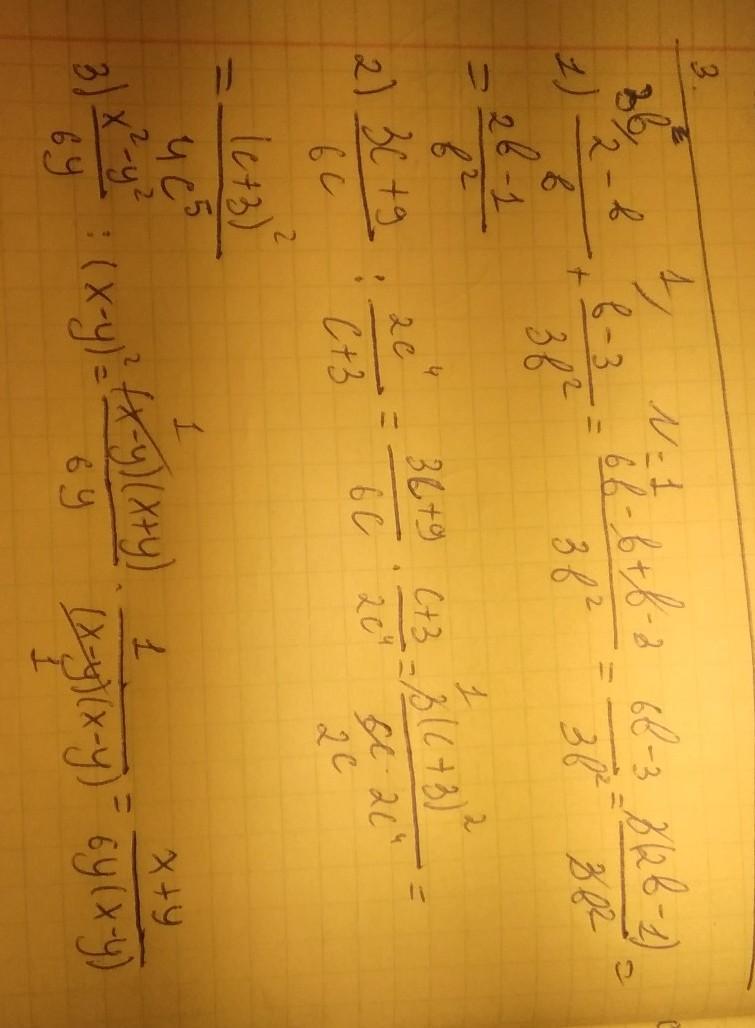 3.
1/ N=1
1) (2-b)/b + (b-3)/3b² = (6b-b+b-3)/3b² = (6b-3)/3b² = 3(2b-1)/3b² =
= (2b-1)/b²
2) (3c+9)/6c : 2c⁴/(c+3) = (3c+9)/6c · (c+3)/2c⁴ = 3(c+3)²/(6c·2c⁴) =
= (c+3)²/4c⁵
3) (x²-y²)/6y : (x-y)² = (x-y)(x+y)/6y · 1/((x-y)(x-y)) = (x+y)/(6y(x-y))